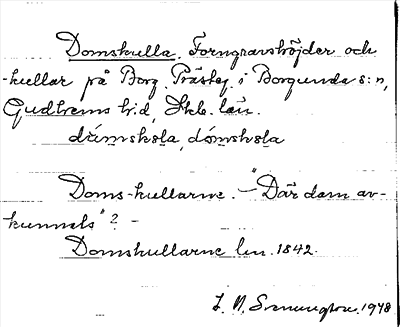 Domskulla. Forngravshöjder och
-kullar på Borg. Prästeg. i Borgunda s:n,
Gudhems h:d, Skb. län.
dåmskola, dómskola
Doms-kullarne. – "Där dom av-
kunnats" ? –
Domskullarne lm. 1842.
1948